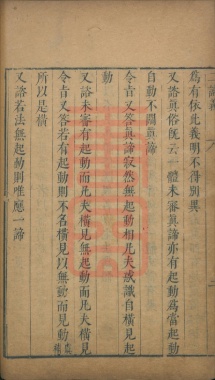 為有依此義明不得別異
又諮眞俗旣云一體未審眞諦亦有起動爲當起動
自動不關眞諦
令旨又答眞諦寂然無起動相凡夫惑識自橫見起
動
又諮未審有起動而凡夫橫見無起動而凡夫橫見
令旨又答若有起動則不名橫見以無動而見動
所以是橫
又諮若法無起動則唯應一諦